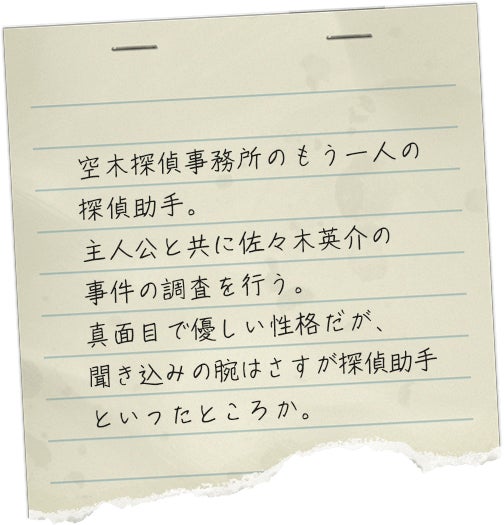 空木探偵事務所のもう一人の
探偵助手。
主人公と共に佐々木英介の
事件の調査を行う。
真面目で優しい性格だが、
聞き込みの腕はさすが探偵助手
といったところか。